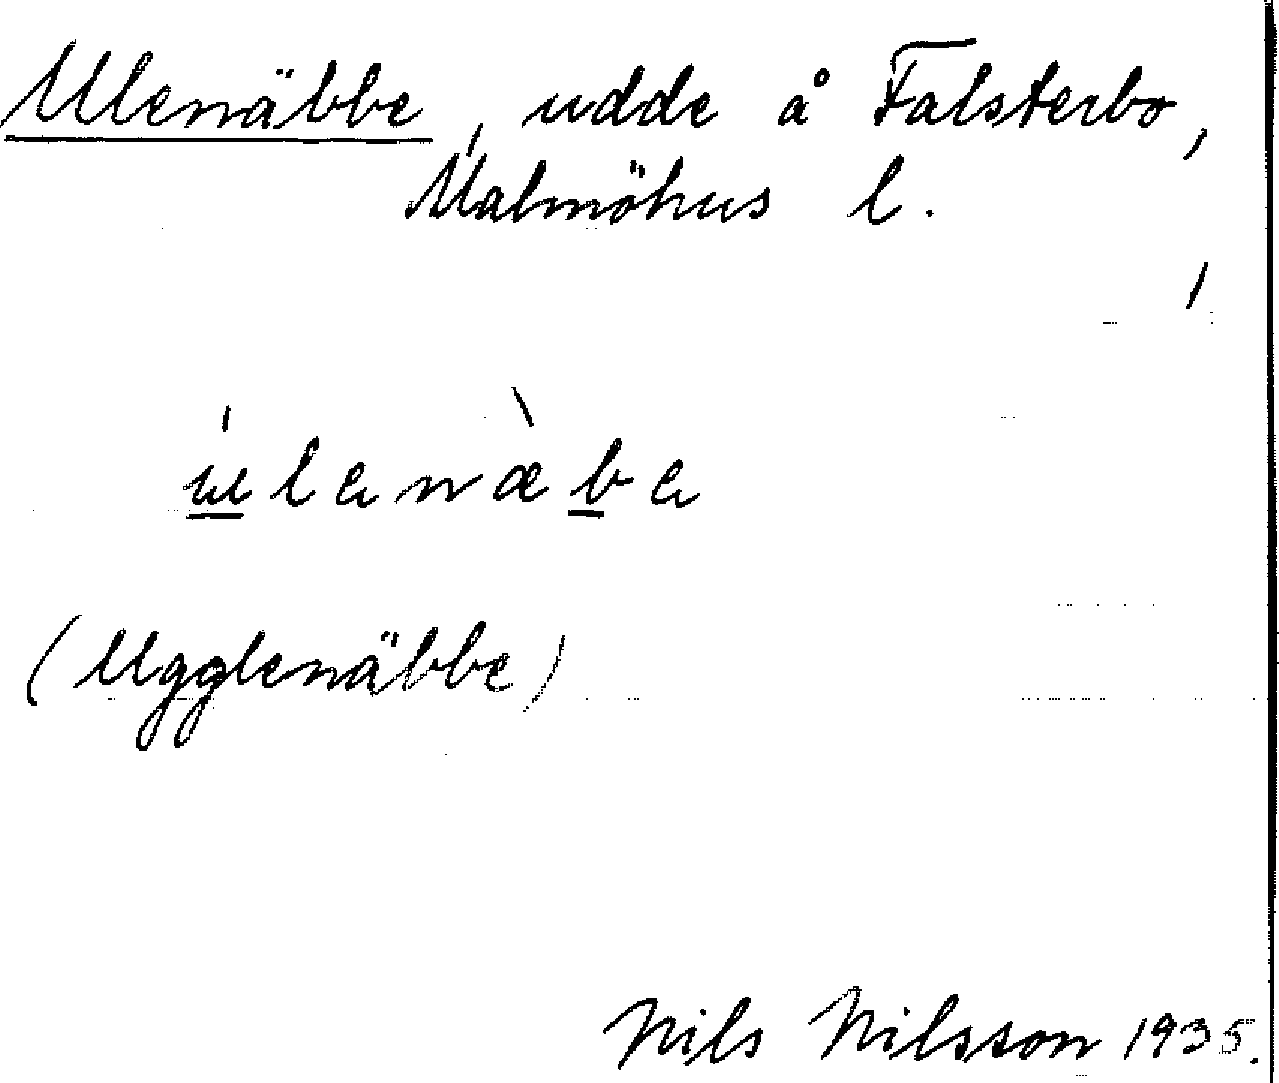 Ulenäbbe, udde å Falsterbo,
Malmöhus l.
úlenæ̀be
(Ugglenäbbe)
Nils Nilsson 1935.